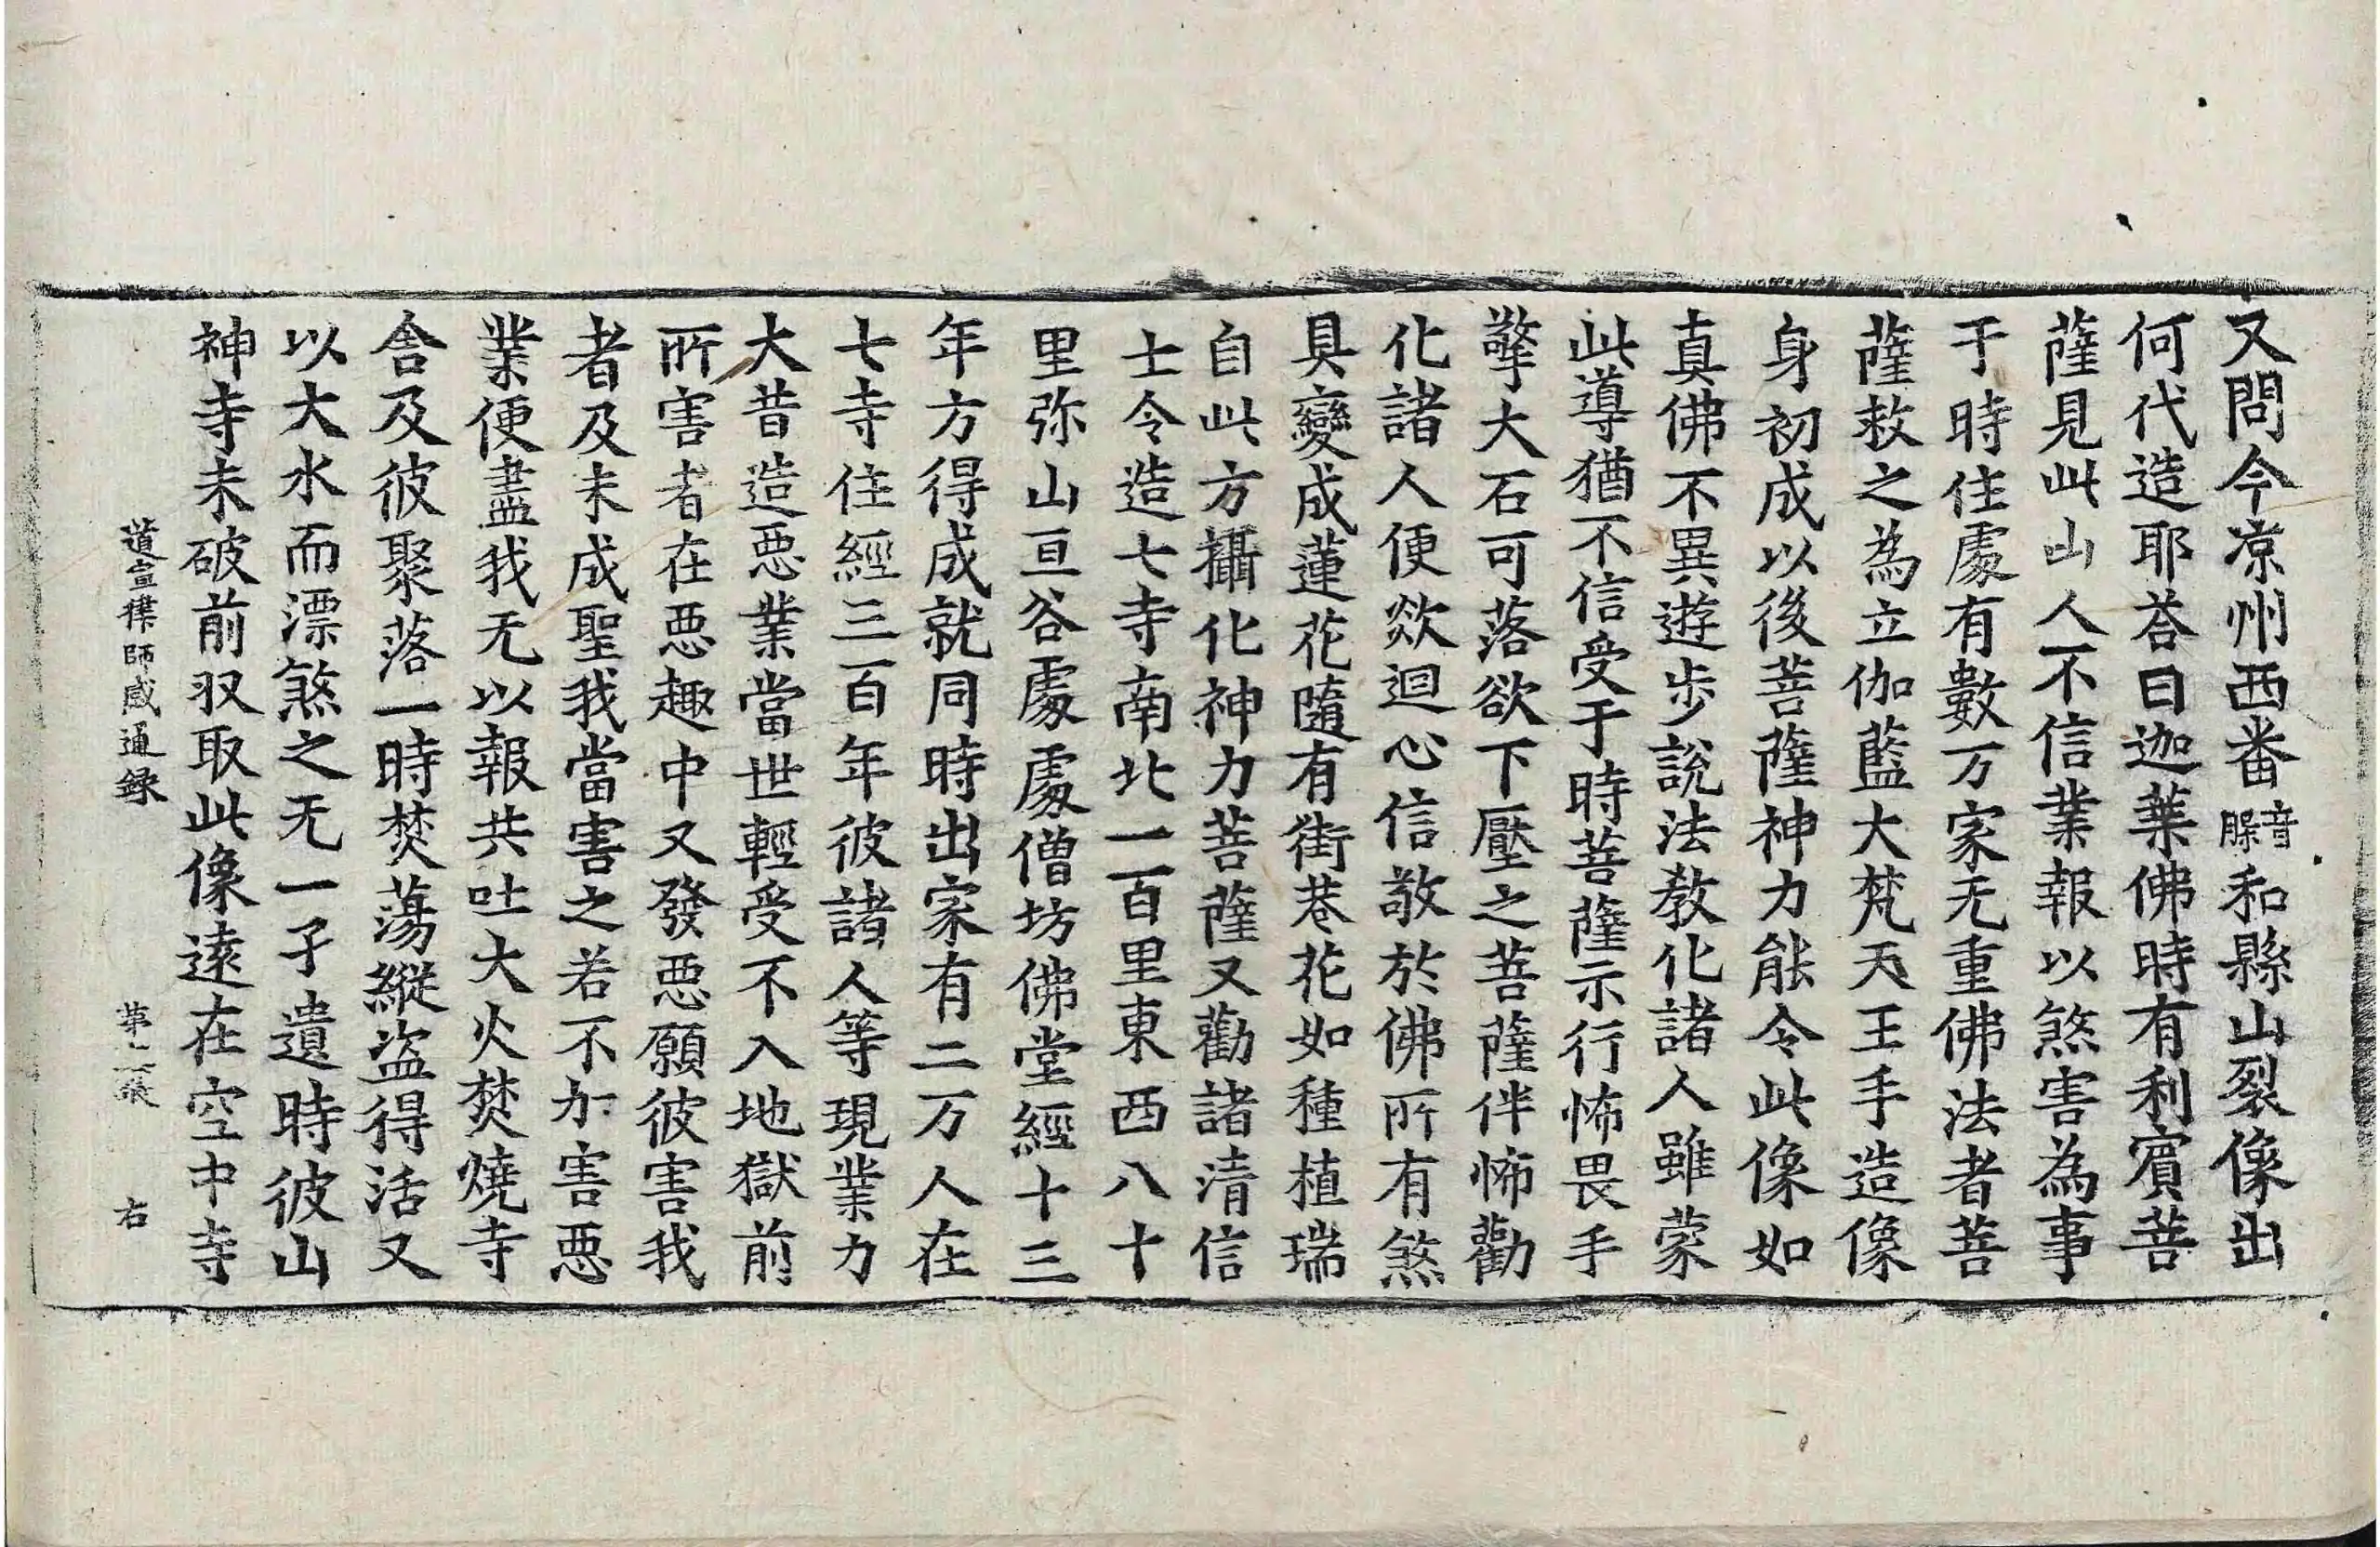 又問今凉州西番音䐢和縣山裂像出
何代造耶荅曰迦葉佛時有利賔菩
薩見此山人不信業報以煞害為事
于時住處有數万家无重佛法者菩
薩救之為立伽藍大梵天王手造像
身初成以後菩薩神力能令此像如
真佛不異遊步說法教化諸人雖蒙
此導猶不信受于時菩薩示行怖畏手
擎大石可落欲下壓之菩薩伴怖勸
化諸人便欻迴心信敬於佛所有煞
具變成蓮花隨有街巷花如種植瑞
自此方攝化神力菩薩又勸諸清信
士令造七寺南北一百里東西八十
里弥山亘谷處處僧坊佛堂經十三
年方得成就同時出家有二万人在
七寺住經三百年彼諸人等現業力
大昔造惡業當世輕受不入地獄前
所害者在惡趣中又發惡願彼害我
者及未成聖我當害之若不加害惡
業便盡我无以報共吐大火焚燒寺
舍及彼聚落一時焚蕩縱盗得活又
以大水而漂煞之无一孑遺時彼山
神寺未破前収取此像遠在空中寺
道宣律師感通錄 第 張 右